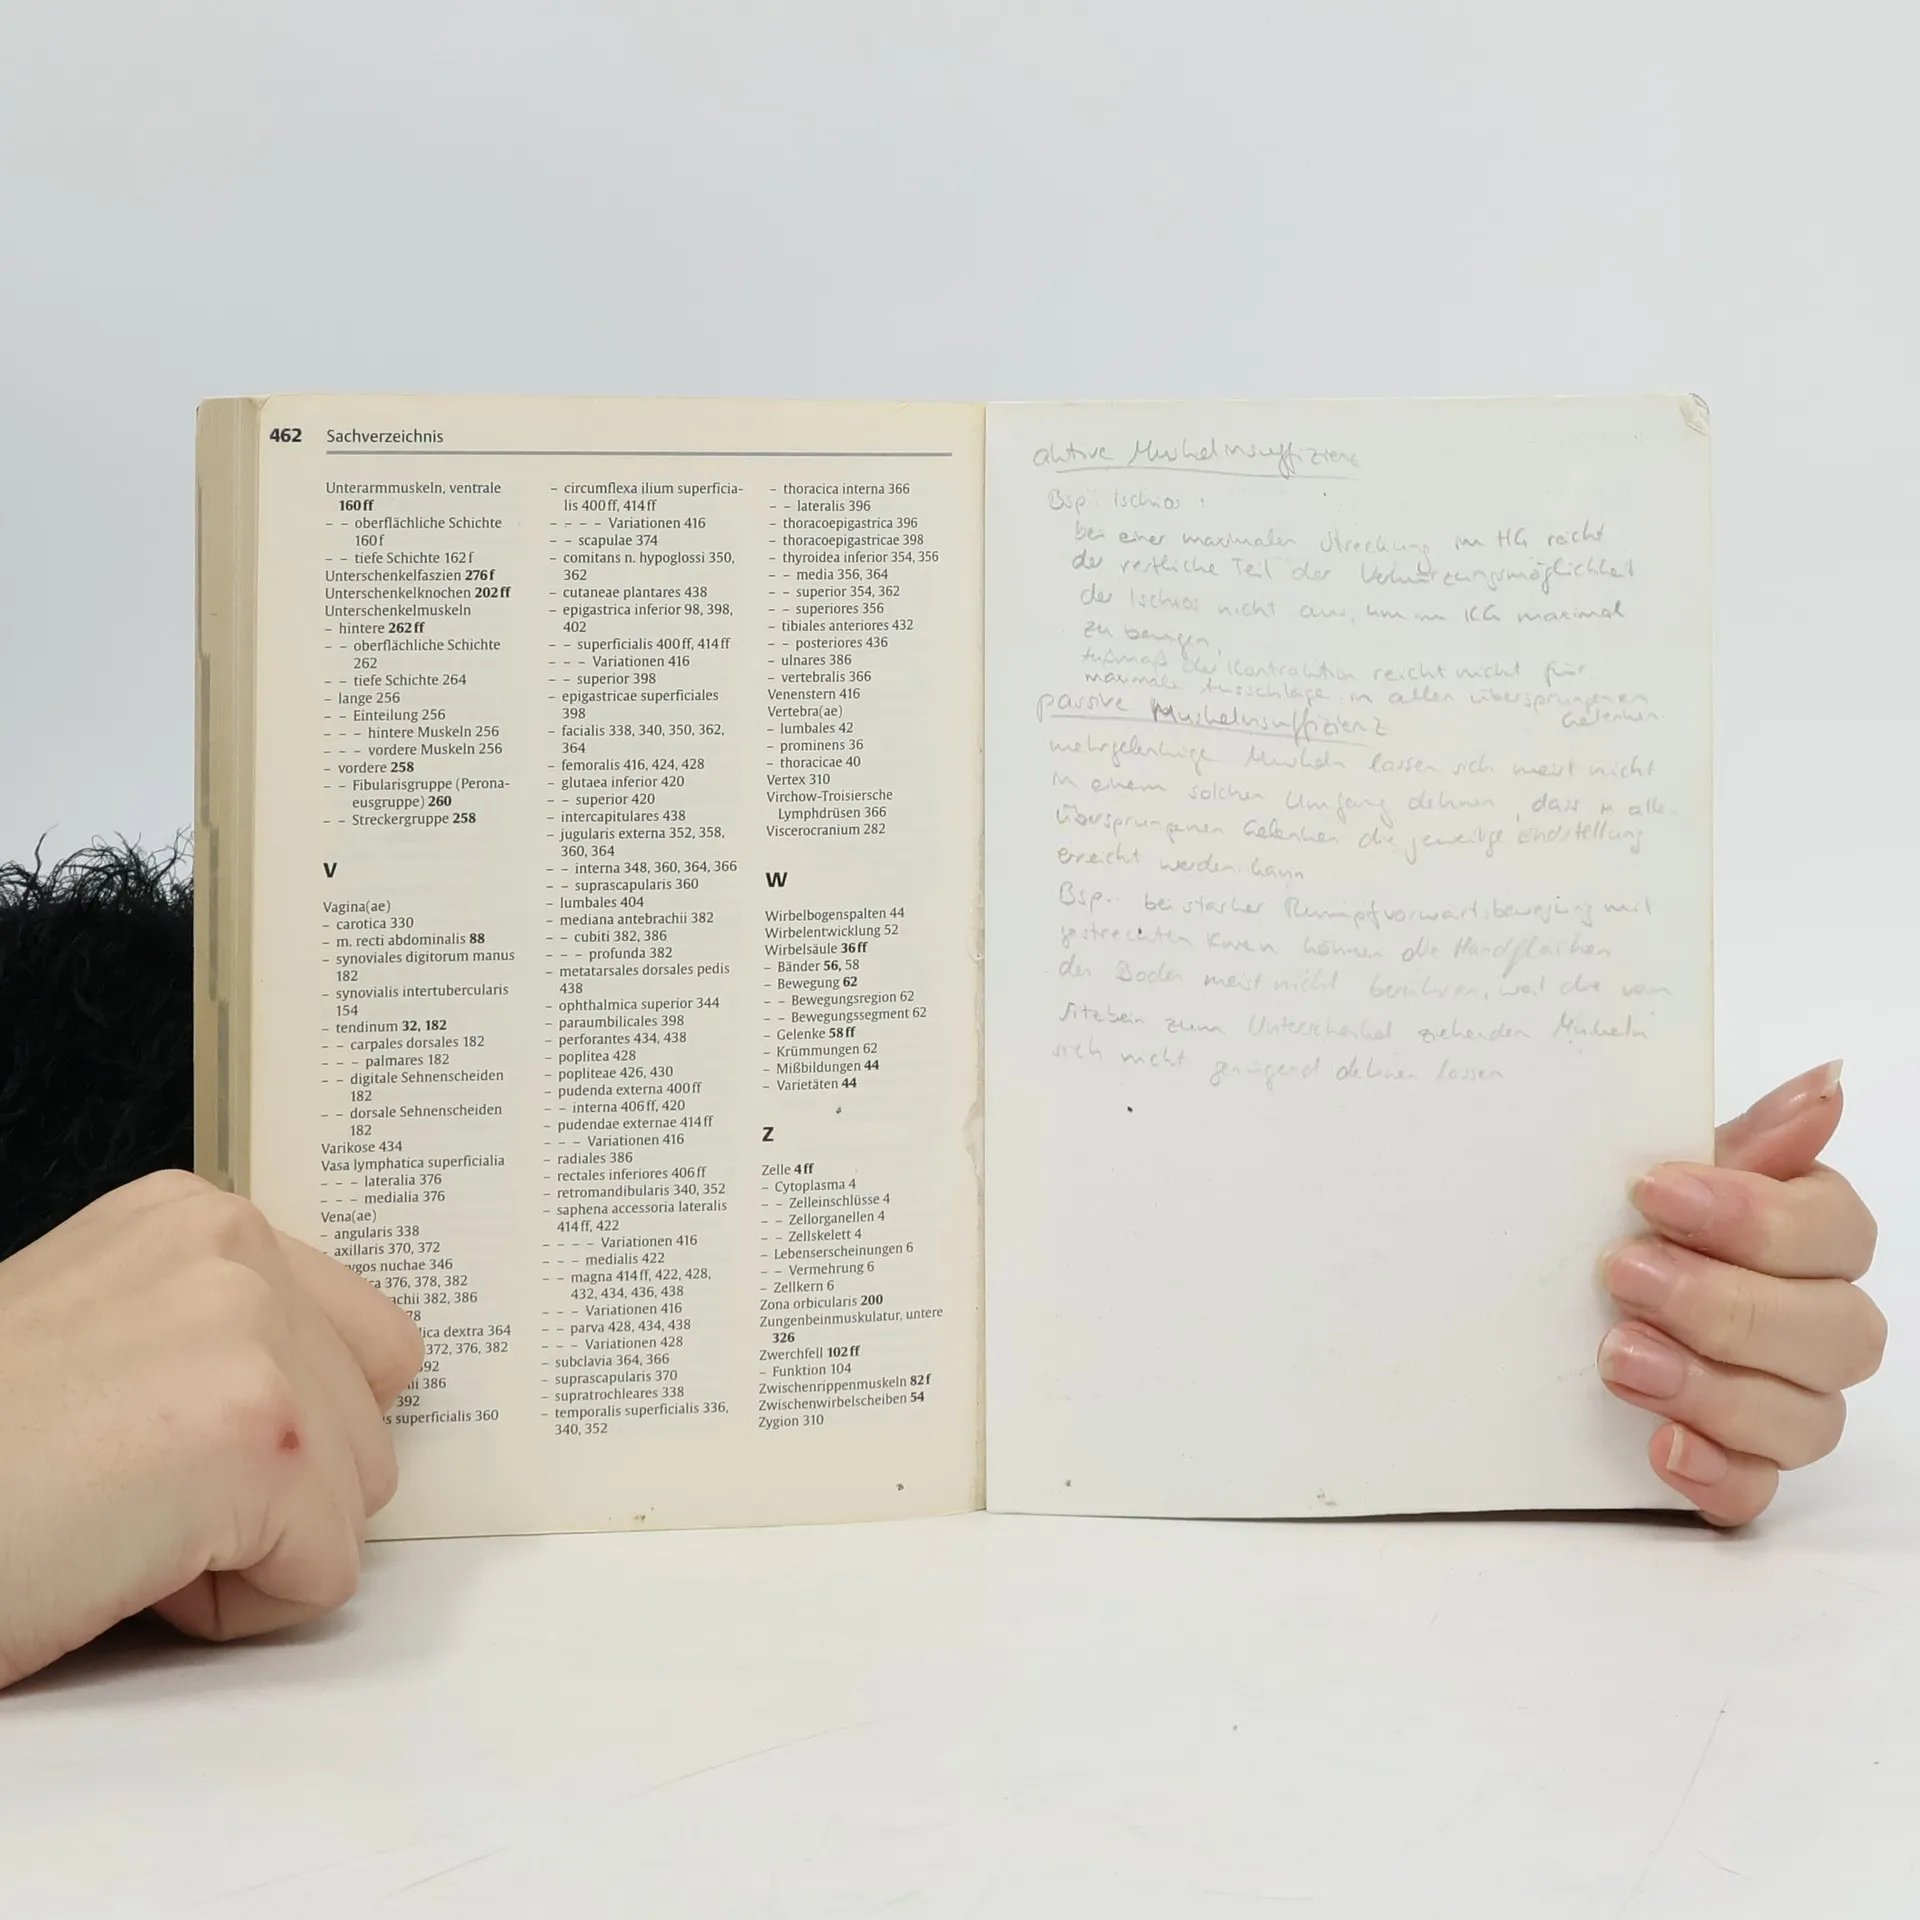 462 Sachverzeichnis
Unterarmmuskeln, ventrale
160 ff
– – oberflächliche Schichte
160 f
– – tiefe Schichte 162 f
Unterschenkelfaszien 276 f
Unterschenkelknochen 202 ff
Unterschenkelmuskeln
– hintere 262 ff
– – oberflächliche Schichte
262
– – tiefe Schichte 264
– lange 256
– – Einteilung 256
– – – hintere Muskeln 256
– – – vordere Muskeln 256
– vordere 258
– – Fibularisgruppe (Perona-
eusgruppe) 260
– – Streckergruppe 258
V
Vagina(ae)
– carotica 330
– m. recti abdominalis 88
– synoviales digitorum manus
182
– synovialis intertubercularis
154
– tendinum 32, 182
– – carpales dorsales 182
– – – palmares 182
– – digitale Sehnenscheiden
182
– – dorsale Sehnenscheiden
182
Varikose 434
Vasa lymphatica superficialia
– – – lateralia 376
– – – medialia 376
Vena(ae)
– angularis 338
– axillaris 370, 372
nuchae 346
376, 378, 382
382, 386
dextra 364
372, 376, 382
386
392
superficialis 360
– circumflexa ilium superficia-
lis 400 ff, 414 ff
– – – – Variationen 416
– – scapulae 374
– comitans n. hypoglossi 350,
362
– cutaneae plantares 438
– epigastrica inferior 98, 398,
402
– – superficialis 400 ff, 414 ff
– – – Variationen 416
– – superior 398
– epigastricae superficiales
398
– facialis 338, 340, 350, 362,
364
– femoralis 416, 424, 428
– glutaea inferior 420
– – superior 420
– intercapitulares 438
– jugularis externa 352, 358,
360, 364
– – interna 348, 360, 364, 366
– – suprascapularis 360
– lumbales 404
– mediana antebrachii 382
– – cubiti 382, 386
– – – profunda 382
– metatarsales dorsales pedis
438
– ophthalmica superior 344
– paraumbilicales 398
– perforantes 434, 438
– poplitea 428
– popliteae 426, 430
– pudenda externa 400 ff
– – interna 406 ff, 420
– pudendae externae 414 ff
– – – Variationen 416
– radiales 386
– rectales inferiores 406 ff
– retromandibularis 340, 352
– saphena accessoria lateralis
414 ff, 422
– – – – Variationen 416
– – – medialis 422
– – magna 414 ff, 422, 428,
432, 434, 436, 438
– – – Variationen 416
– – parva 428, 434, 438
– – – Variationen 428
– subclavia 364, 366
– suprascapularis 370
– supratrochleares 338
– temporalis superficialis 336,
340, 352
– thoracica interna 366
– – lateralis 396
– thoracoepigastrica 396
– thoracoepigastricae 398
– thyroidea inferior 354, 356
– – media 356, 364
– – superior 354, 362
– – superiores 356
– tibiales anteriores 432
– – posteriores 436
– ulnares 386
– vertebralis 366
Venenstern 416
Vertebra(ae)
– lumbales 42
– prominens 36
– thoracicae 40
Vertex 310
Virchow-Troisiersche
Lymphdrüsen 366
Viscerocranium 282
W
Wirbelbogenspalten 44
Wirbelentwicklung 52
Wirbelsäule 36 ff
– Bänder 56, 58
– Bewegung 62
– – Bewegungsregion 62
– – Bewegungssegment 62
– Gelenke 58 ff
– Krümmungen 62
– Mißbildungen 44
– Varietäten 44
Z
Zelle 4 ff
– Cytoplasma 4
– – Zelleinschlüsse 4
– – Zellorganellen 4
– – Zellskelett 4
– Lebenserscheinungen 6
– – Vermehrung 6
– Zellkern 6
Zona orbicularis 200
Zungenbeinmuskulatur, untere
326
Zwerchfell 102 ff
– Funktion 104
Zwischenrippenmuskeln 82 f
Zwischenwirbelscheiben 54
Zygion 310
aktive Muskelinsuffizienz
Bsp.: Ischios:
bei einer maximalen Streckung im HG reicht
der restliche Teil der Verkürzungsmöglichkeit
der Ischios nicht aus, um im KG maximal
zu beugen,
Ausmaß der Kontraktion reicht nicht für
maximale Ausschläge in allen übersprungenen
Gelenken.
passive Muskelinsuffizienz
mehrgelenkige Muskeln lassen sich meist nicht
in einem solchen Umfang dehnen, dass in allen
übersprungenen Gelenken die jeweilige Endstellung
erreicht werden kann
Bsp.: bei starker Rumpfvorwärtsbewegung mit
gestreckten Knien können die Handflächen
den Boden meist nicht berühren, weil die vom
Sitzbein zum Unterschenkel ziehenden Muskeln
sich nicht genügend dehnen lassen